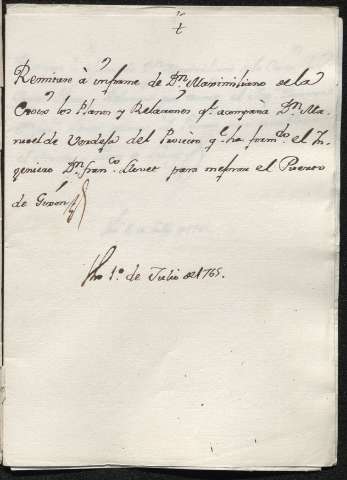 +
Remitase à informe de Dn. Maximiliano de la
Croix los Planos y Relaciones q. acompaña Dn. Ma-
nuel de del Proiecto q. ha formdo. el In-
geniero Dn. Franco. Llovet para mejorar el Puerto
de Gixon
fho 1.º de Julio de 1765.